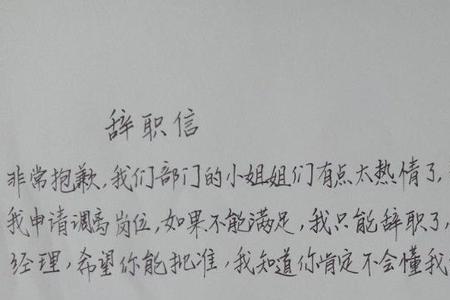 辞职信
非常抱歉,我们部门的小姐姐们有点太热情了,
我申请调离岗位,如果不能满足,我只能辞职了,
经理,希望你能批准,我知道你肯定不会懂我